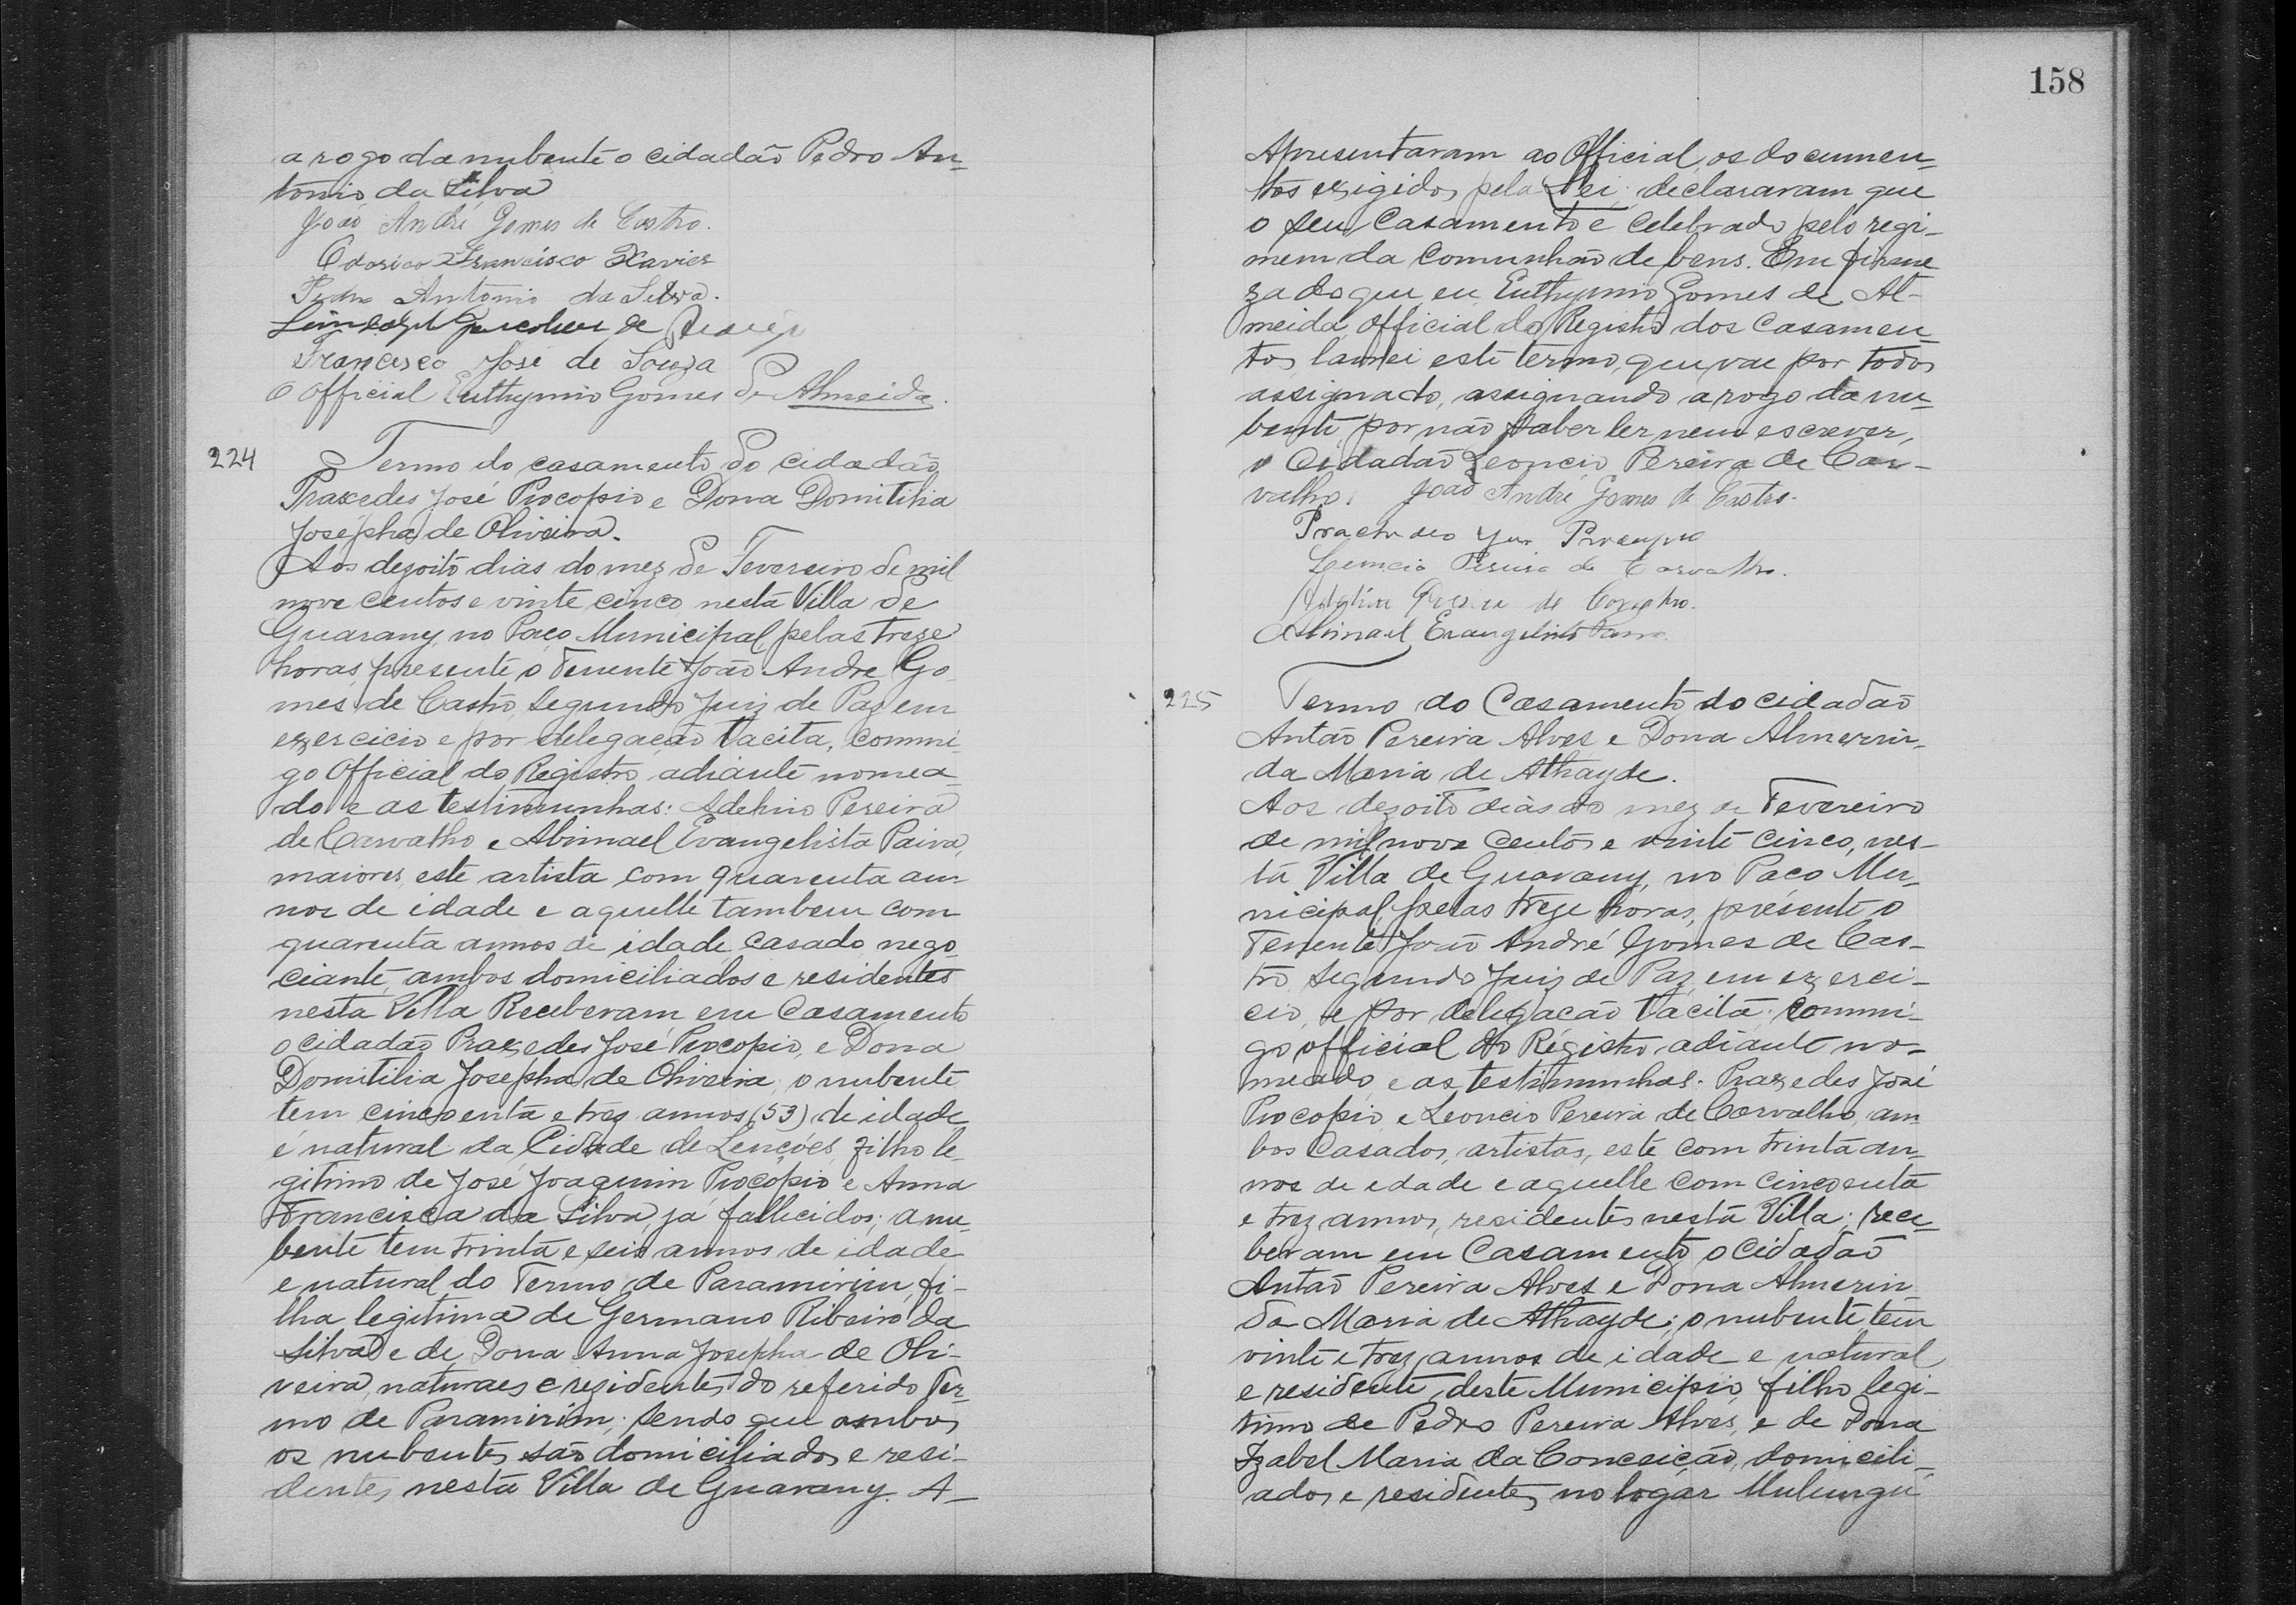 a rogo da nubente o cidadão Pedro An-
tonio da Silva
João André Gomes de Castro.
Odorico Francisco Xavier
Pedro Antonio da Silva.
de
Francisco José de Souza
O Official Euthymio Gomes de Almeida.
224 Termo do casamento do cidadão
Praxedes José Procopio e Dona Domitilia
Josepha de Oliveira.
Aos dezoito dias do mez de Fevereiro de mil
nove centos e vinte cinco, nesta Villa de
Guarany, no Paço Municipal, pelas treze
horas, presente o Tenente João André Go
mes de Castro, segundo Juiz de Paz em
exercicio e por delegacão tacita, commi-
go Official do Registro, adiante nomea-
do e as testimunhas: Adelino Pereira
de Carvalho e Abimael Evangelista Paiva,
maiores, este artista com quarenta an-
nos de idade e aquelle tambem com
quarenta annos de idade, casado nego
ciante, ambos domiciliados e residentes
nesta Villa Receberam em Casamento
o cidadão Praxedes José Procopio, e Dona
Domitilia Josepha de Oliveira, o nubente
tem cincoenta e trez annos (53) de idade
é natural da Cidade de Lençóes, filho le-
gitimo de José Joaquim Procopio e Anna
Francisca da Silva, já fallecidos; a nu-
bente tem trinta e seis annos de idade
e natural do Termo de Paramirim, fi-
lha legitima de Germano Ribeiro da
Silva e de Dona Anna Josepha de Oli-
veira, naturaes e rezidentes do referido Ter-
mo de Paramirim; sendo que ambos
os nubentes são domiciliados e resi-
dentes nesta Villa de Guarany. A-
158
Apresentaram ao Official os documen-
tos exigidos pela Lei; declararam que
o seu Casamento é celebrado pelo regi-
mem da Comunhão de bens. Em firme
za do que eu Euthymio Gomes de Al-
meida, official do Registro dos Casamen-
tos lavrei este termo, que vae por todos
assignado, assignando a rogo da nu-
bente, por não saber ler, nem escrever,
o Cidadão Leoncio Pereira de Car-
valho. João André Gomes de Castro.
Procopio
Leuncio Pereira de Carvalho.
de Carvalho.
Abimael Evangelista Paiva.
225 Termo do Casamento do cidadão
Antão Pereira Alves e Dona Almerin-
da Maria de Athayde.
Aos dezoito dias do mez de Fevereiro
de mil nove centos e vinte cinco, nes-
ta Villa de Guarany, no Paço Mu-
nicipal, pelas treze horas, presente o
Tenente João André Gomes de Cas-
tro, segundo Juiz de Paz em exerci-
cio, e por delegacão tacita, commi-
go official do Registro adiante no-
meado, e as testimunhas: Praxedes José
Procopio, e Leoncio Pereira de Carvalho, am
bos Casados, artistas, este com trinta an-
nos de edade e aquelle com cincoenta
e trez annos, residentes nesta Villa; rece-
beram em Casamento, o Cidadão
Antão Pereira Alves e Dona Almerin
da Maria de Athayde; o nubente tem
vinte e trez annos de idade e natural
e residente, deste Municipio, filho legi-
timo de Pedro Pereira Alves, e de Dona
Izabel Maria da Conceição, domicili-
ados e residentes no logar Mulungú